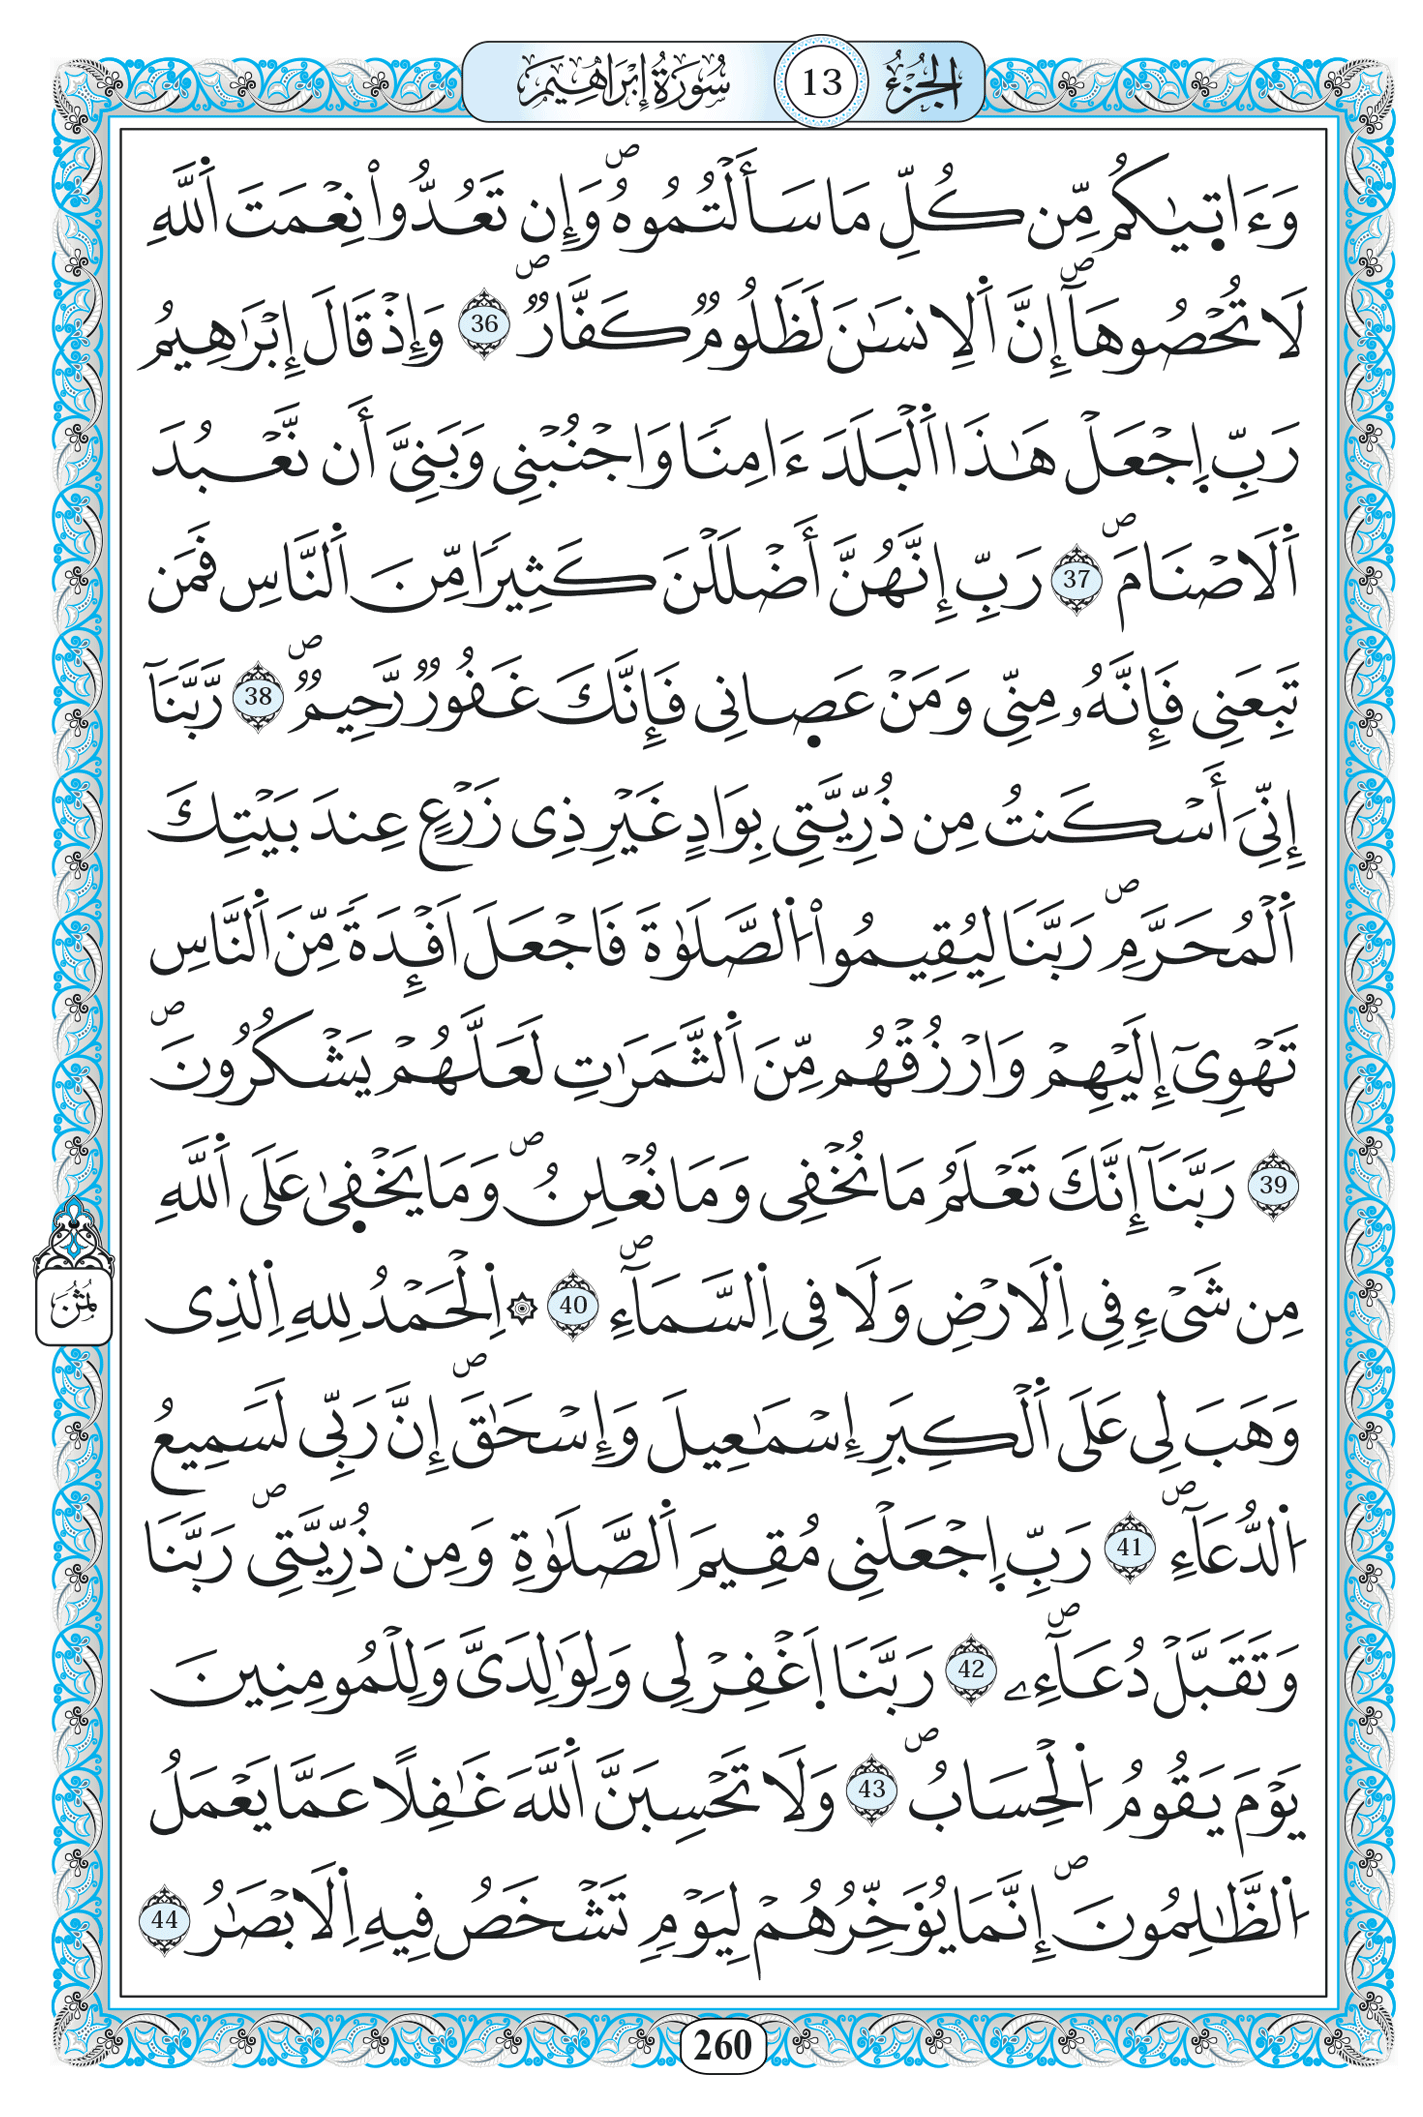 الجزء 13 سورة إبراهيم
وَءَاتٜيٰكُم مِّن كُلِّ مَا سَأَلْتُمُوهُۖ وَإِن تَعُدُّواْ نِعْمَتَ اَ۬للَّهِ
لَا تُحْصُوهَآۖ إِنَّ اَ۬لِانسَٰنَ لَظَلُومٞ كَفَّارٞۖ 36 وَإِذْ قَالَ إِبْرَٰهِيمُ
رَبِّ اِ۪جْعَلْ هَٰذَا اَ۬لْبَلَدَ ءَامِنٗا وَاجْنُبْنِي وَبَنِيَّ أَن نَّعْبُدَ
اَ۬لَاصْنَامَۖ 37 رَبِّ إِنَّهُنَّ أَضْلَلْنَ كَثِيرٗا مِّنَ اَ۬لنَّاسِ فَمَن
تَبِعَنِي فَإِنَّهُۥ مِنِّي وَمَنْ عَصٜانِي فَإِنَّكَ غَفُورٞ رَّحِيمٞۖ 38 رَّبَّنَآ
إِنِّيَ أَسْكَنتُ مِن ذُرِّيَّتِي بِوَادٍ غَيْرِ ذِي زَرْعٍ عِندَ بَيْتِكَ
اَ۬لْمُحَرَّمِۖ رَبَّنَا لِيُقِيمُواْ اُ۬لصَّلَوٰةَ فَاجْعَلَ اَفْـِٕدَةٗ مِّنَ اَ۬لنَّاسِ
تَهْوِيٓ إِلَيْهِمْ وَارْزُقْهُم مِّنَ اَ۬لثَّمَرَٰتِ لَعَلَّهُمْ يَشْكُرُونَۖ
39 رَبَّنَآ إِنَّكَ تَعْلَمُ مَا نُخْفِي وَمَا نُعْلِنُۖ وَمَا يَخْفٜيٰ عَلَى اَ۬للَّهِ
مِن شَيْءٖ فِي اِ۬لَارْضِ وَلَا فِي اِ۬لسَّمَآءِۖ 40 ۞ اِ۬لْحَمْدُ لِلهِ اِ۬لذِي
وَهَبَ لِي عَلَى اَ۬لْكِبَرِ إِسْمَٰعِيلَ وَإِسْحَٰقَۖ إِنَّ رَبِّي لَسَمِيعُ
اُ۬لدُّعَآءِۖ 41 رَبِّ اِ۪جْعَلْنِي مُقِيمَ اَ۬لصَّلَوٰةِ وَمِن ذُرِّيَّتِيۖ رَبَّنَا
وَتَقَبَّلْ دُعَآءِۦۖ 42 رَبَّنَا اَ۪غْفِرْ لِي وَلِوَٰلِدَيَّ وَلِلْمُومِنِينَ
يَوْمَ يَقُومُ اُ۬لْحِسَابُۖ 43 وَلَا تَحْسِبَنَّ اَ۬للَّهَ غَٰفِلًا عَمَّا يَعْمَلُ
اُ۬لظَّٰلِمُونَۖ إِنَّمَا يُؤَخِّرُهُمْ لِيَوْمٖ تَشْخَصُ فِيهِ اِ۬لَابْصَٰرُ 44
ثمن
260